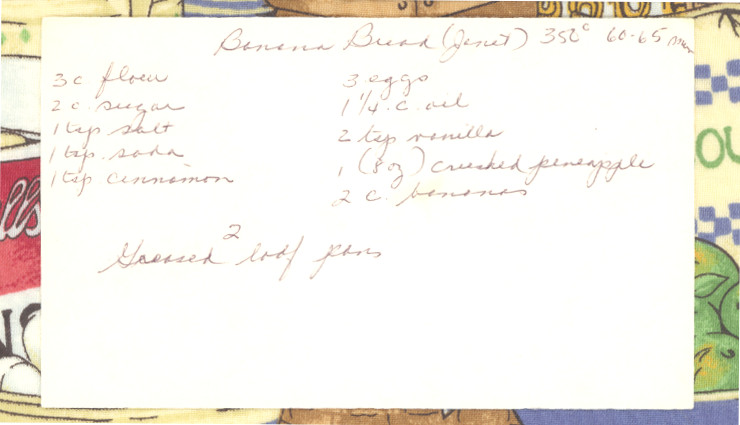 Banana Bread (Janet) 350° 60-65 min
3 c flour
2 c. sugar
1 tsp salt
1 tsp. soda
1 tsp. cinnamon
3 eggs
1 1/4 c. oil
2 tsp vanilla
1 (8 oz) crushed pineapple
2 c. bananas
Greased 2 loaf pans